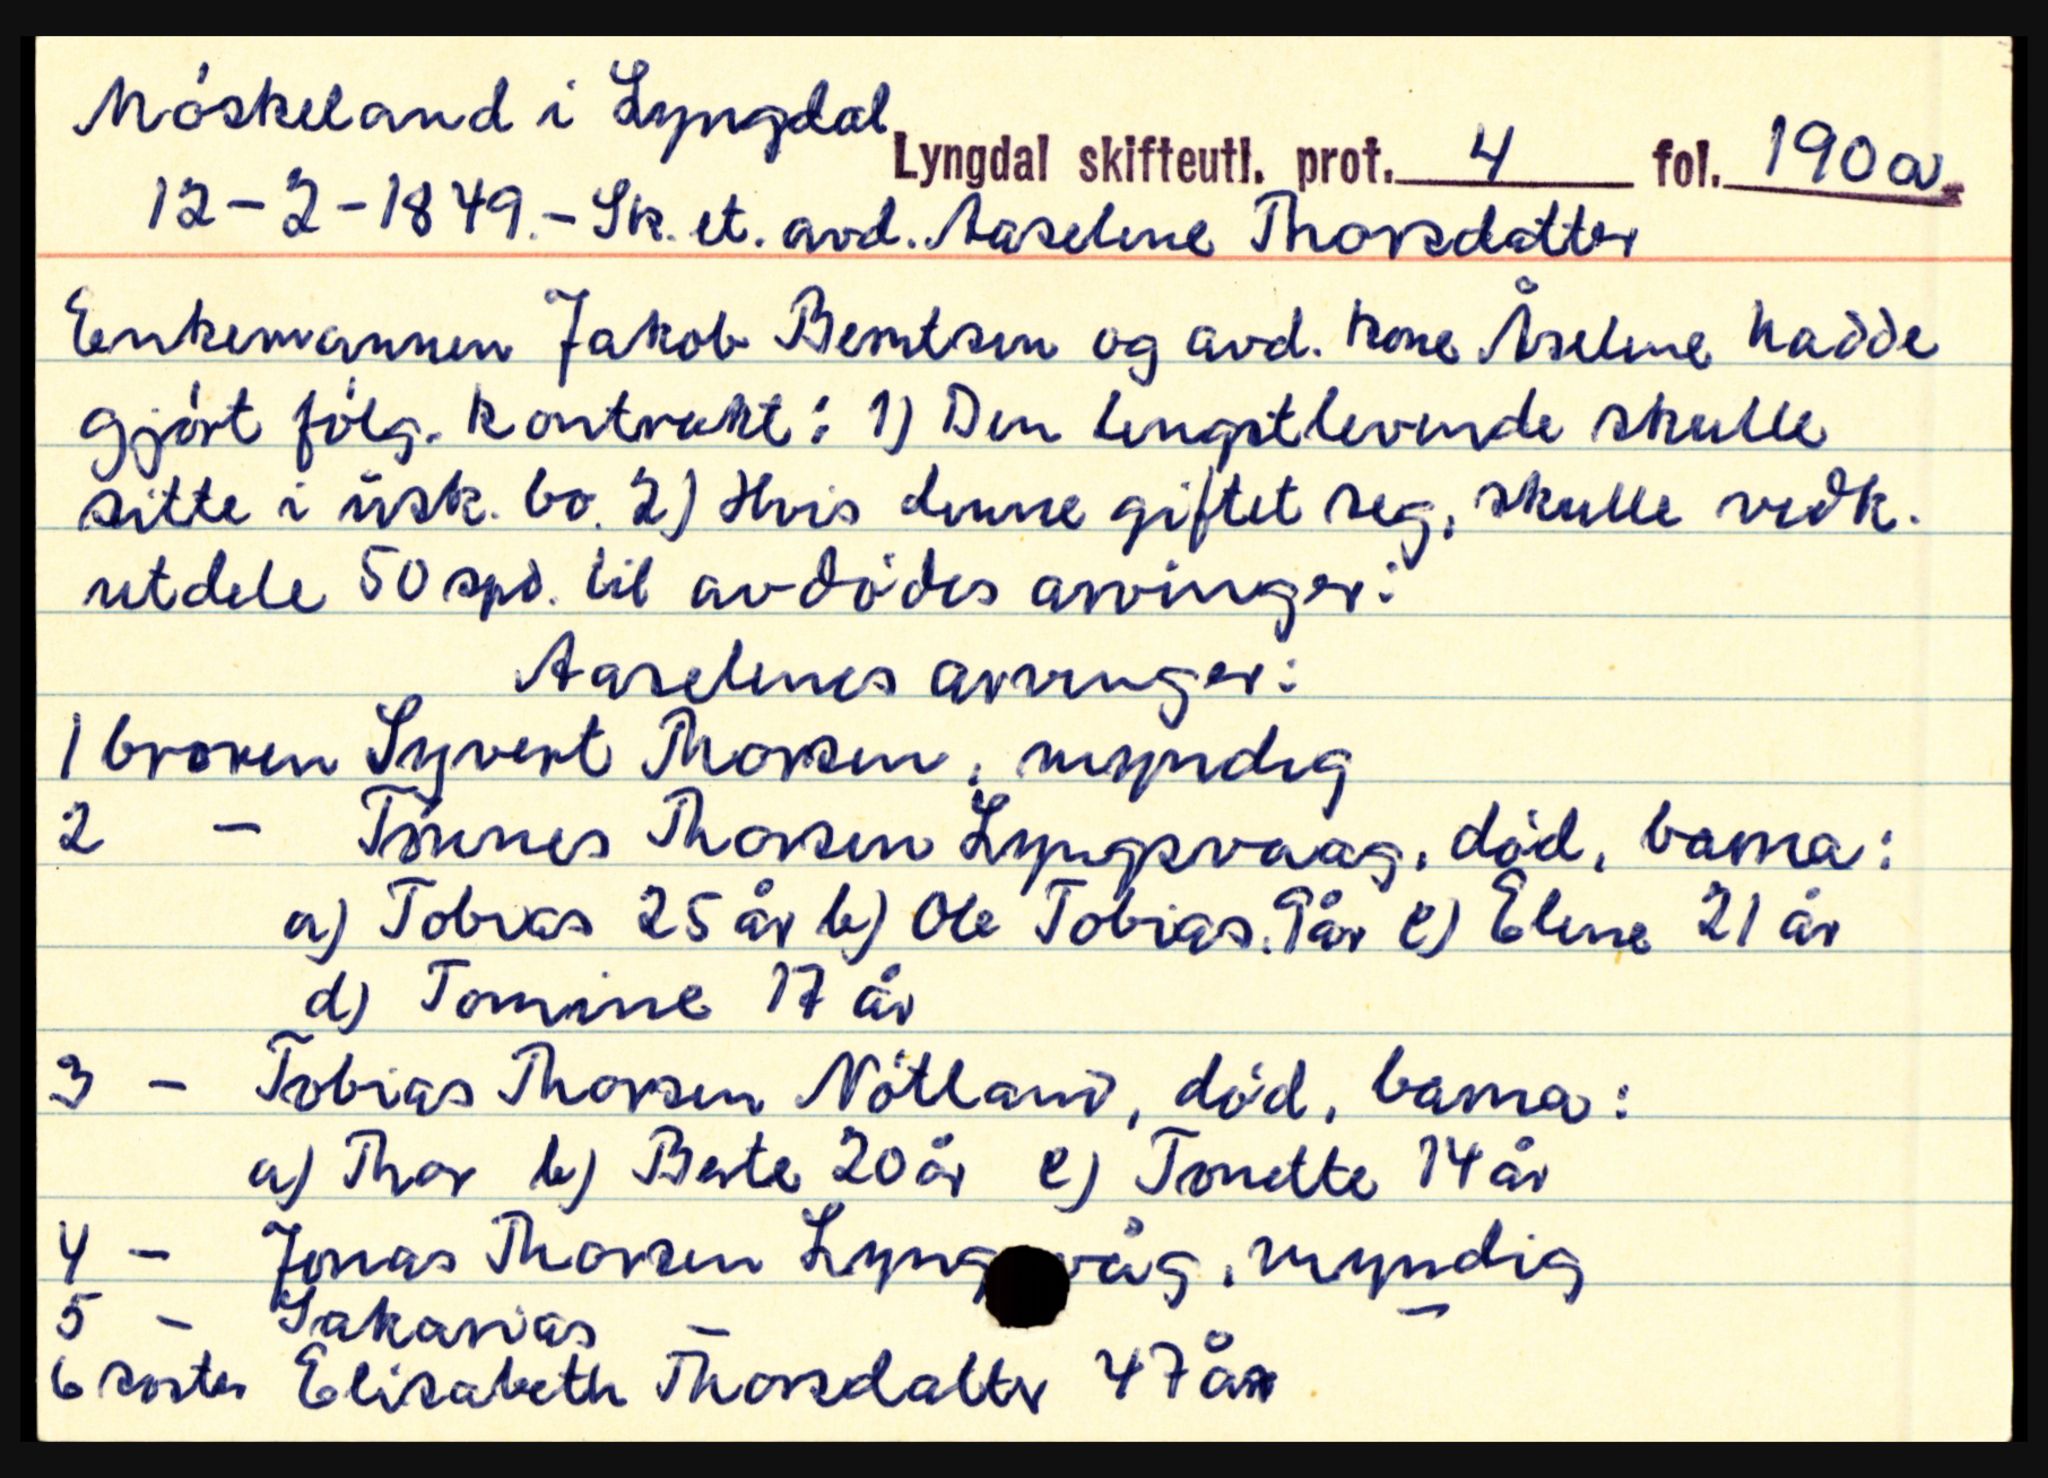 Móskeland i Lyngdal
Lyngdal skifteutl. prot. 4 fol. 190a
12-2-1849.- Sk. et. avd. Aaselene Thorsdatter
Enkemannen Jakob Berntsen og avd. kone Åselene hadde
gjórt fólg. kontrakt: 1) Den lengstlevende skulle
sitte i úsk. bo. 2) Hvis denne giftet seg, skulle vedk.
utdele 50 spd. til avdódes arvinger:
Aaselenes arvinger:
1 broren Syvert Thorsen, myndig
2 - Tönnes Thorsen Lyngsvaag, död, barna:
a) Tobias 25 år b) Ole Tobias. 9 år c) Elene 21 år
d) Tomine 17 år
3 - Tobias Thorsen Nótland, död, barna:
a) Thor b) Berte 20 år c) Tonette 14 år
4 - Jonas Thorsen Lyng våg, myndig
5 - Sakarias - -
6 soster Elisabeth Thorsdatter 47 år